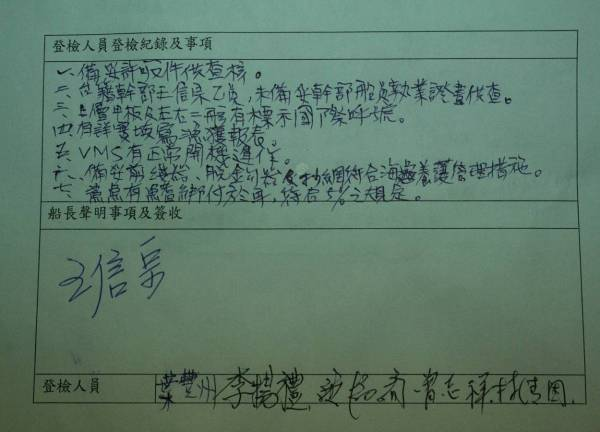 登檢人員登檢紀錄及事項
一、備妥許可文件供查核。
二、台籍幹部王信呆乙員,未備妥幹部船員執業證書供查。
三、上層甲板及左右二舷有標示國際呼號。
四、有詳實填寫漁獲報表。
五、VMS有正常開機運作。
六、備妥剪線器、脫鉤器及抄網符合海龜養護管理措施。
七、鯊魚有鯊鰭綁付於身,符合5%之規定。
船長聲明事項及簽收
王信呆
登檢人員
葉豐州 李揚禮